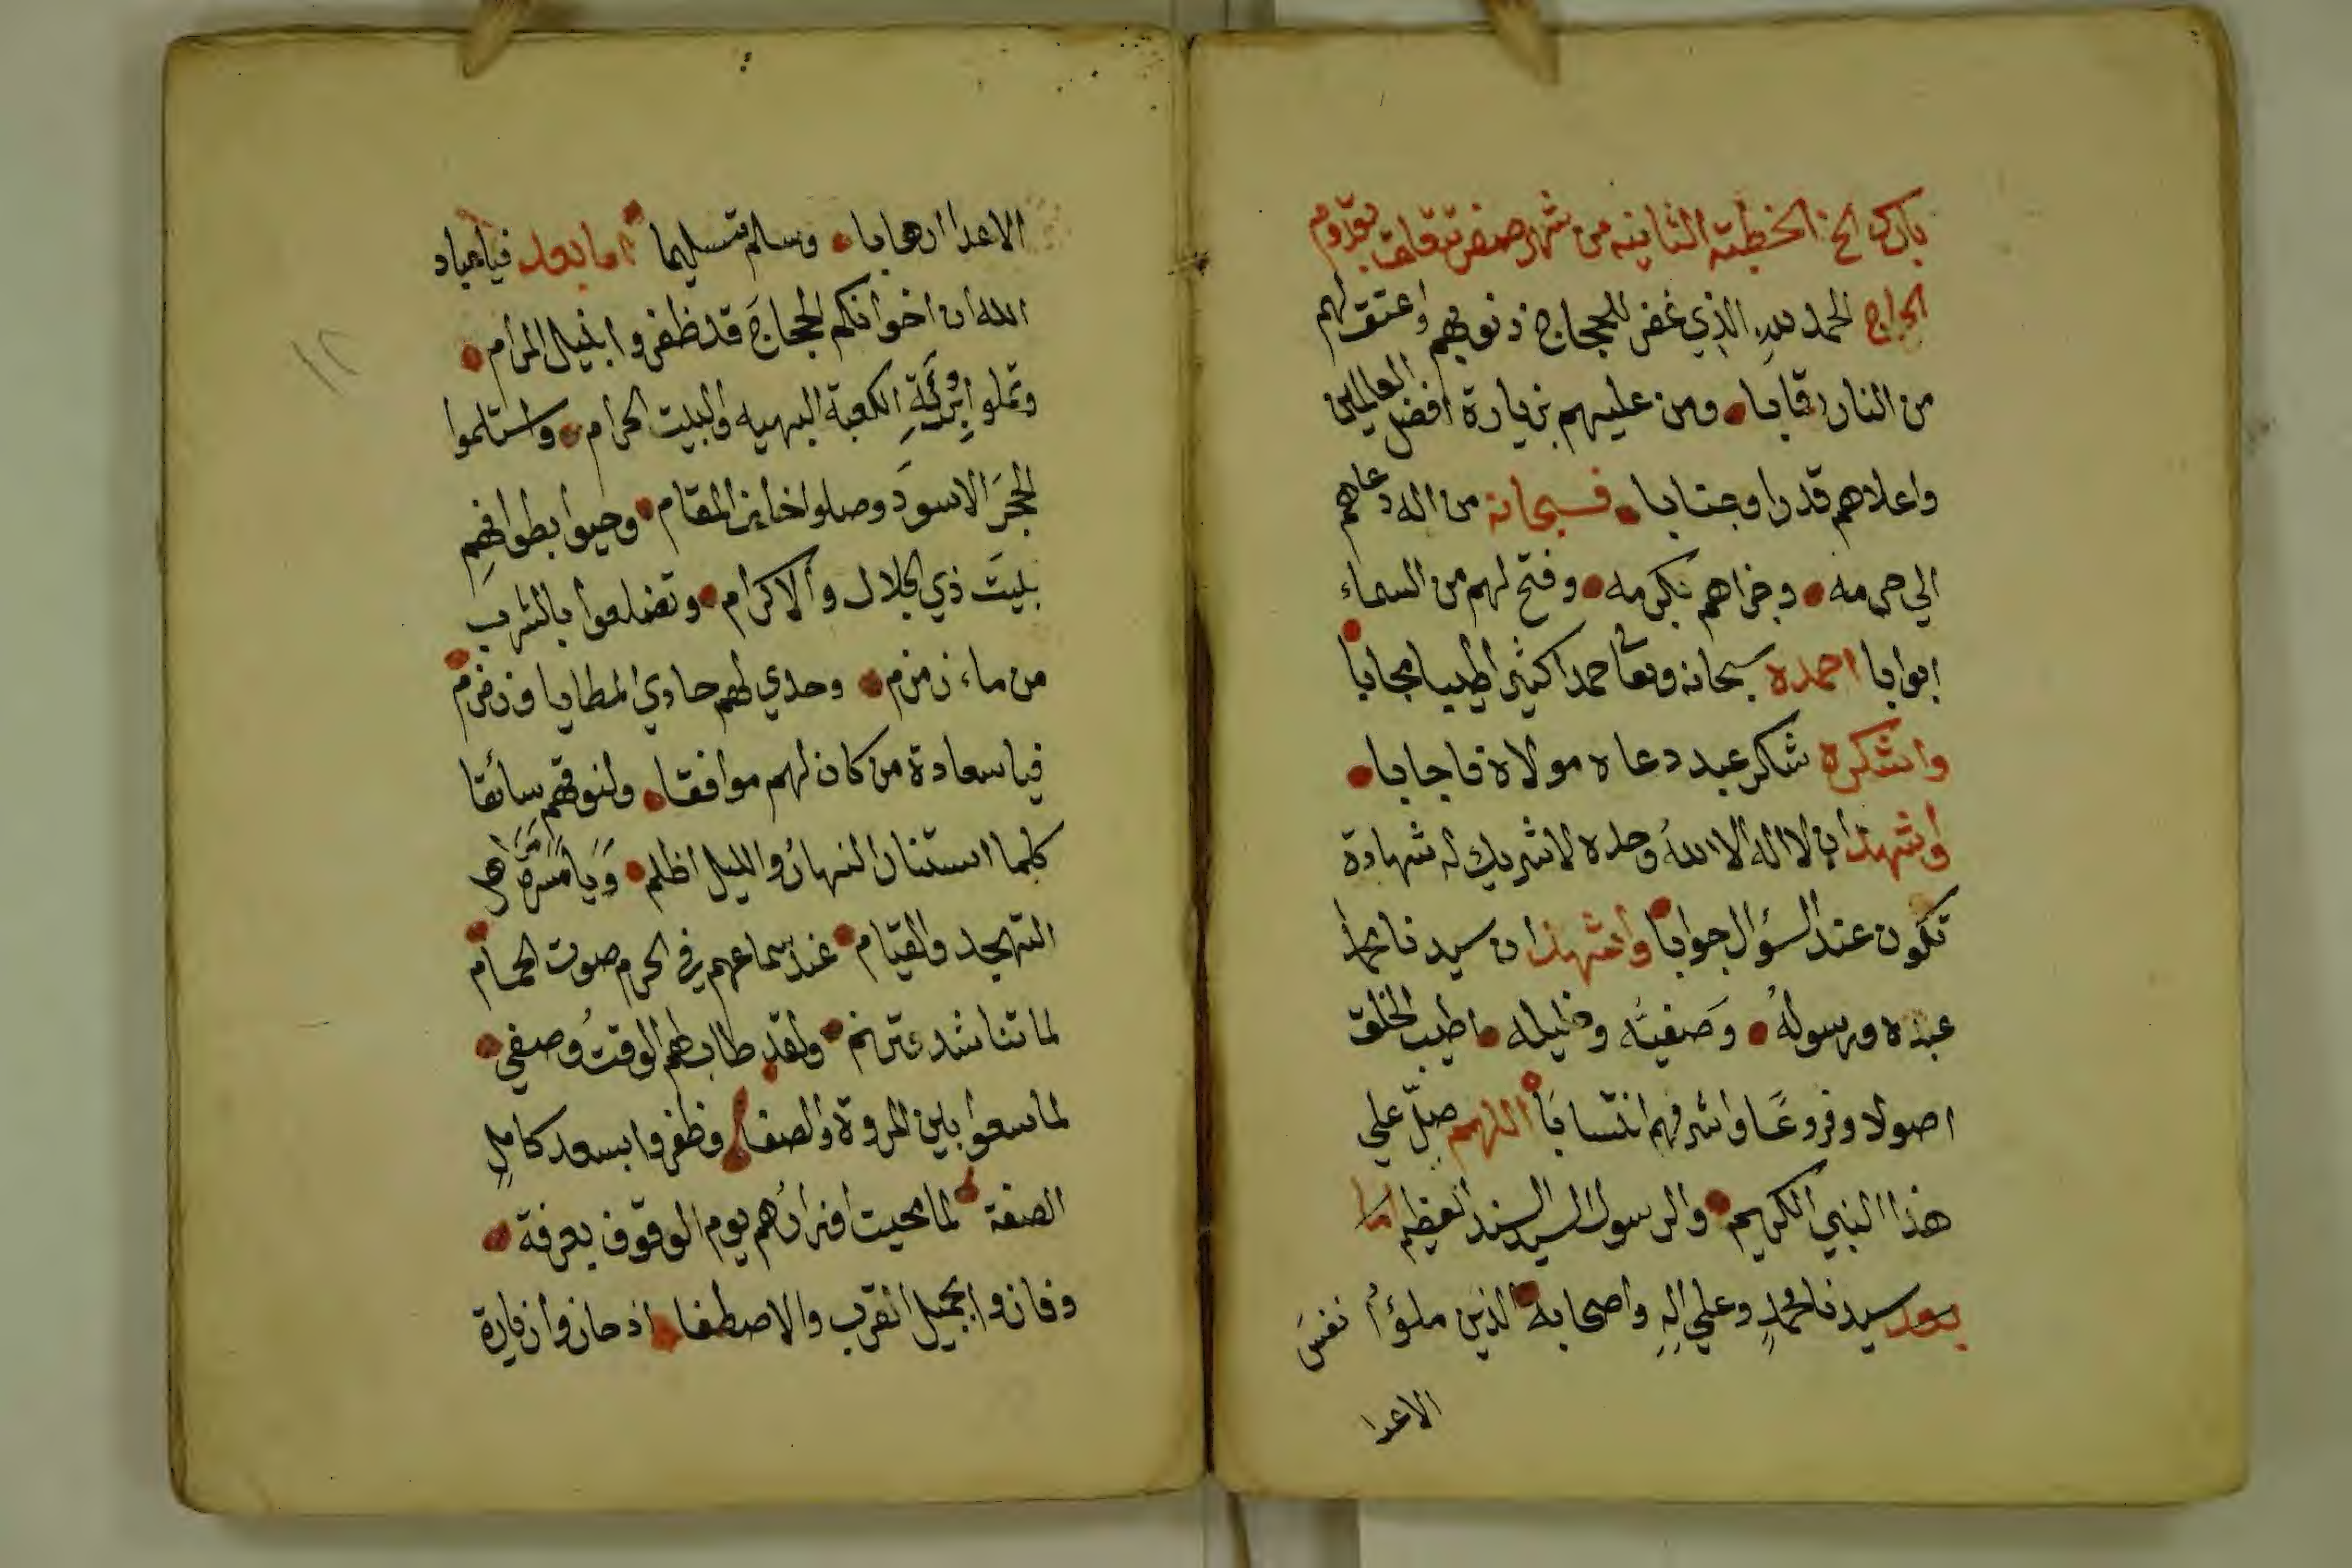 بارك الخ الخطبة الثانيه من شهر صفر تتعلق بقدوم
الحجاج الحمد لله الذي غفر للحجاج ذنوبهم واعتق لهم
من النار رقابا ومن عليهم بزيارة افضل العالمين
واعلاهم قدرا وجنابا فسبحانه من اله دعاهم
الي حرمه وجزاهم بكرمه وفتح لهم من السماء
ابوابا احمده سبحانه وتعا حمدا كثيرا طيبا مجابا
واشكره شكر عبد دعاه مولاه فاجابا
واشهد ان لا اله الا الله وحده لا شريك له شهادة
تكون عند السؤال جوابا واشهد ان سيدنا محمدا
عبده ورسوله وصفيه وخليله اطيب الخلق
اصولا وفروعا واشرفهم انتسابا اللهم صل علي
هذا النبي الكريم والرسول السيد السند العظيم اما
بعد سيدنا محمد وعلي اله واصحابه الذين ملؤا نفس
الاعدا
الاعدا ارهابا وسلم تسليما اما بعد فياعباد
الله ان اخوانكم الحجاج قد ظفروا بنيل المرام
وتملوا برؤية الكعبة البهيه والبيت الحرام واستلموا
الحجر الاسود وصلوا خلف المقام وحيوا بطوافهم
بيت ذي الجلال والاكرام وتضلعوا بالشرب
من ماء زمزم وحدي لهم حادي المطايا وزمزم
فيا سعادة من كان لهم موافقا ولنوقهم سائقا
كلما استنار النهار والليل اظلم ويا مسرة اهل
التهجد والقيام عند سماعهم في الحرم صوت الحمام
لما تناشد وترنم ولقد طاب لهم الوقت وصفي
لما سعوا بين المروة والصفا وظفروا بسعد كامل
الصفة لما محيت اوزارهم يوم الوقوف بعرفة
وفازوا بجميل القرب والاصطفا اذ حازوا زيارة
١٢